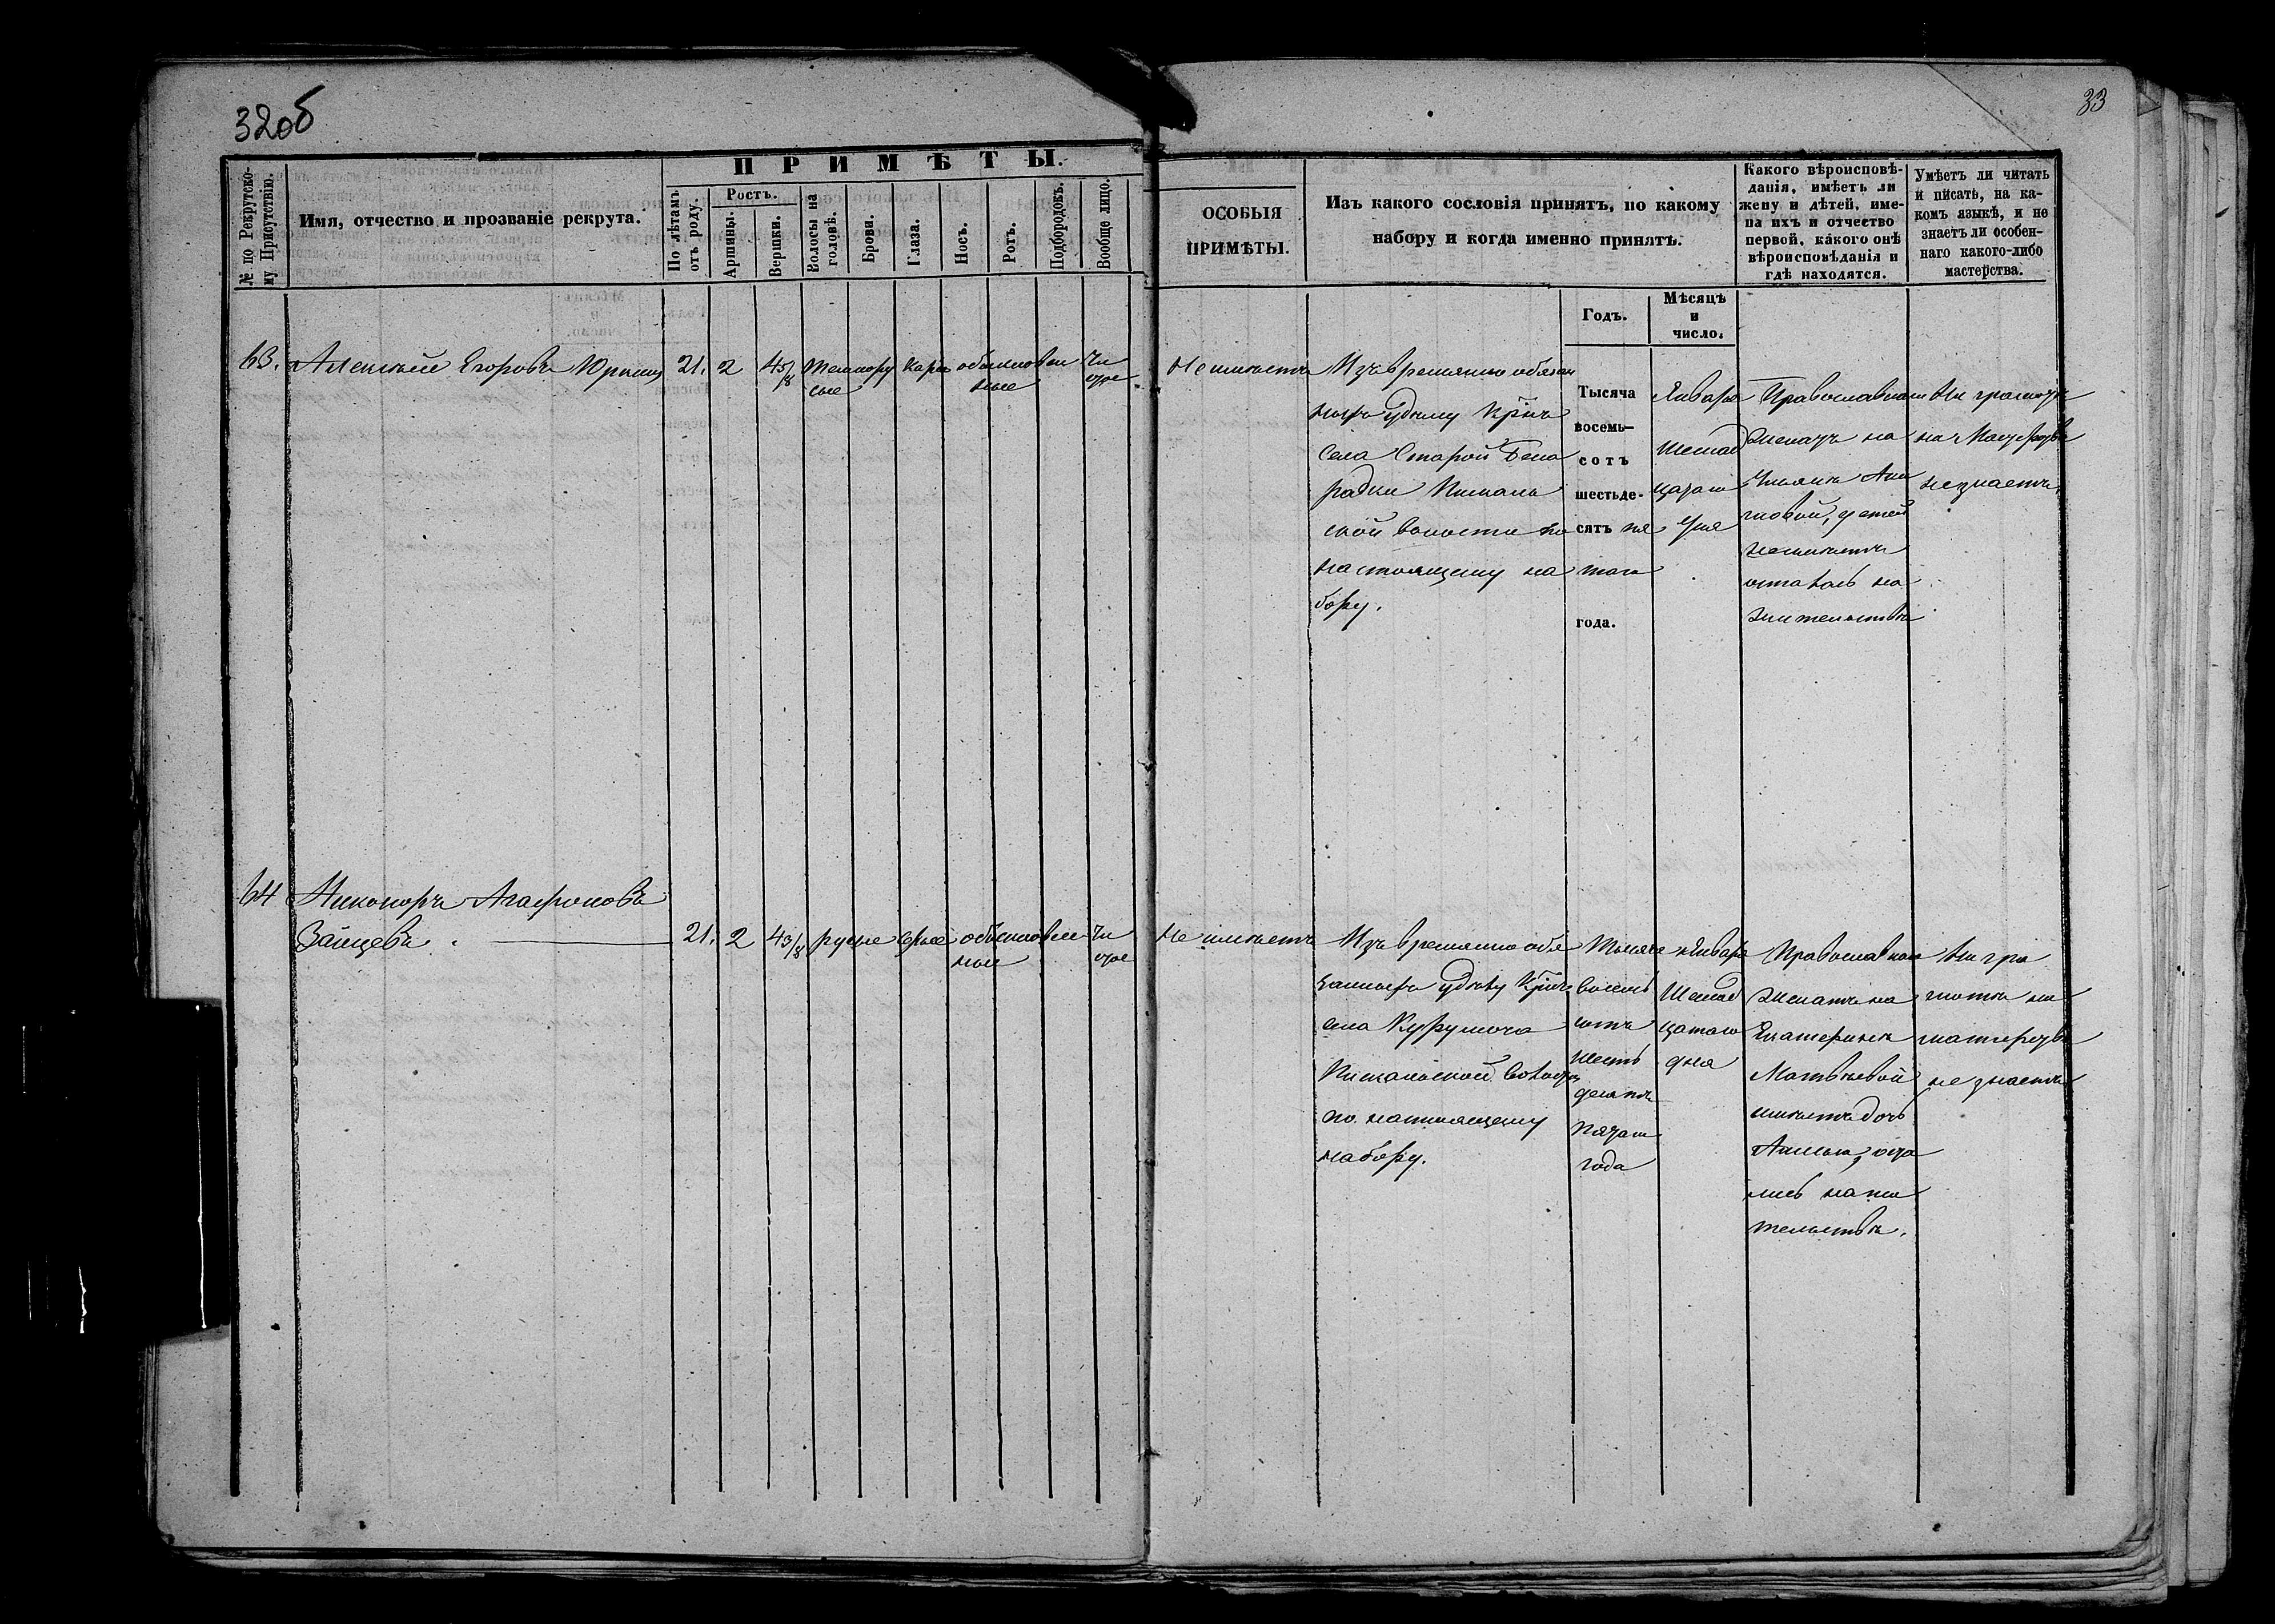 32об
33
ПРИМѢТЫ.
№ по Рекрутско-
му Присутствію.
Имя, отчество и прозваніе рекрута.
По лѣтамъ
отъ роду.
Ростъ.
Аршины.
Вершки.
Волосы на
головѣ.
Брови.
Глаза.
Носъ.
Ротъ.
Подбородокъ.
Вообще лицо.
ОСОБЫЯ
ПРИМѢТЫ.
Изъ какого сословія принятъ, по какому
набору и когда именно принятъ.
Какого вѣроисповѣ-
данія, имѣетъ ли
жену и дѣтей, име-
на ихъ и отчество
первой, какого онѣ
вѣроисповѣданія и
гдѣ находятся.
Умѣетъ ли читать
и писать, на ка-
комъ языкѣ, и не
знаетъ ли особен-
наго какого-либо
мастерства.
Годъ.
Мѣсяцъ
и
число.
63. Алексѣй Егоровъ Юркинъ 21. 2 4 5/8 темнору карі обыкновен чи
сые ные стое
Не имѣетъ
Изъ временно обязан
ныхъ удѣлу Кр҃нъ
села Старой Бина
радки
ской волости по
настоящему на
бору.
Тысяча
восемь-
сотъ
шестьде-
сятъ пя
таго
года.
Января
шестнад
цатаго
дня
Православнаго
женатъ на
Ульянѣ Аки
мовой, дѣтей
неимѣетъ
осталась на
жительствѣ
Ни грамотѣ
ни мастерству
незнаетъ
64 Никоноръ Агафоновъ
Зайцевъ. 21. 2 4 3/8 русые сѣрые обыкновен чи
ные стое
Не имѣетъ
Изъ временно обя
занныхъ удѣлу Кр҃нъ
села Курумоча
волости
по настоящему
набору.
Тысяча
восемь
сотъ
шесть
десятъ
пятаго
года
Января
шестнад
цатаго
дня
Православнаго
женатъ на
Екатеринѣ
Матвѣевой
имѣетъ дочь
оста
лись на жи
тельствѣ.
Ни гра
мотѣ ни
мастерству
не знаетъ